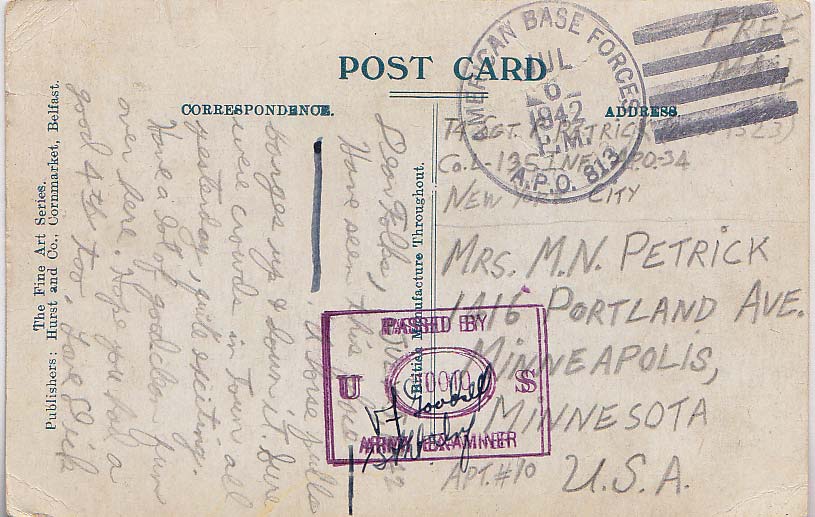 POST CARD
CORRESPONDENCE.
ADDRESS.
FREE
MAIL
AMERICAN BASE FORCES
JUL
6
1942
P.M.
A.P.O. 813
T/SGT. R. PETRICK
Co. L - 135 INF. A.P.O. 34
NEW YORK CITY
MRS. M.N. PETRICK
1416 PORTLAND AVE.
MINNEAPOLIS,
MINNESOTA
APT. #10 U.S.A.
PASSED BY
U S
ARMY EXAMINER
Dear Folks,
Have seen this place
. A horse pulls
barges up & down it. Sure
were crowds in town all
yesterday, quite exciting.
Have a lot of good clean fun
over here. Hope you had a
good 4th too. Love Dick
British Manufacture Throughout.
The Fine Art Series.
Publishers: Hurst and Co., Cornmarket, Belfast.